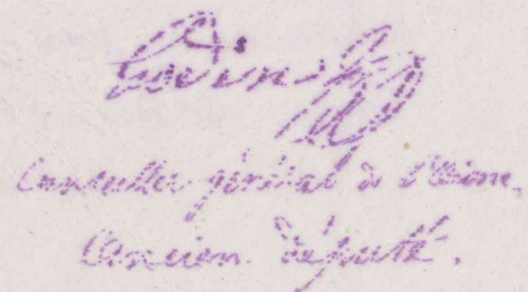 Godin
Conseiller général de l'Aisne,
Ancien député.